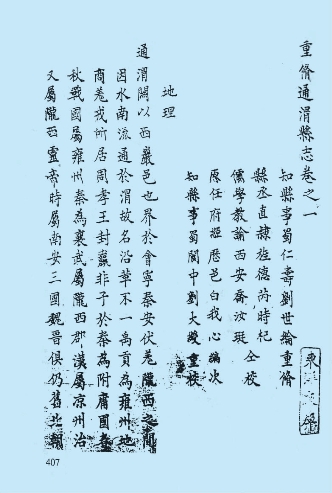 重脩通渭縣志卷之一
知縣事蜀仁壽劉世綸重脩
縣丞直隸旌德芮時杞
儒學教諭西安喬汝珽 仝校
原任府經歷邑白我心編次
知縣事蜀閬中劉大綬重校
地理
通渭關以西巖邑也界於會寧秦安伏羌隴西之間
因水南流通於渭故名沿革不一禹貢為雍州地
商羌戎所居周孝王封嬴非子於秦為附庸國春
秋戰國屬雍州秦為襄武屬隴西郡漢屬涼州治
又屬隴西靈帝時屬南安三國魏晉俱仍舊北朝
407